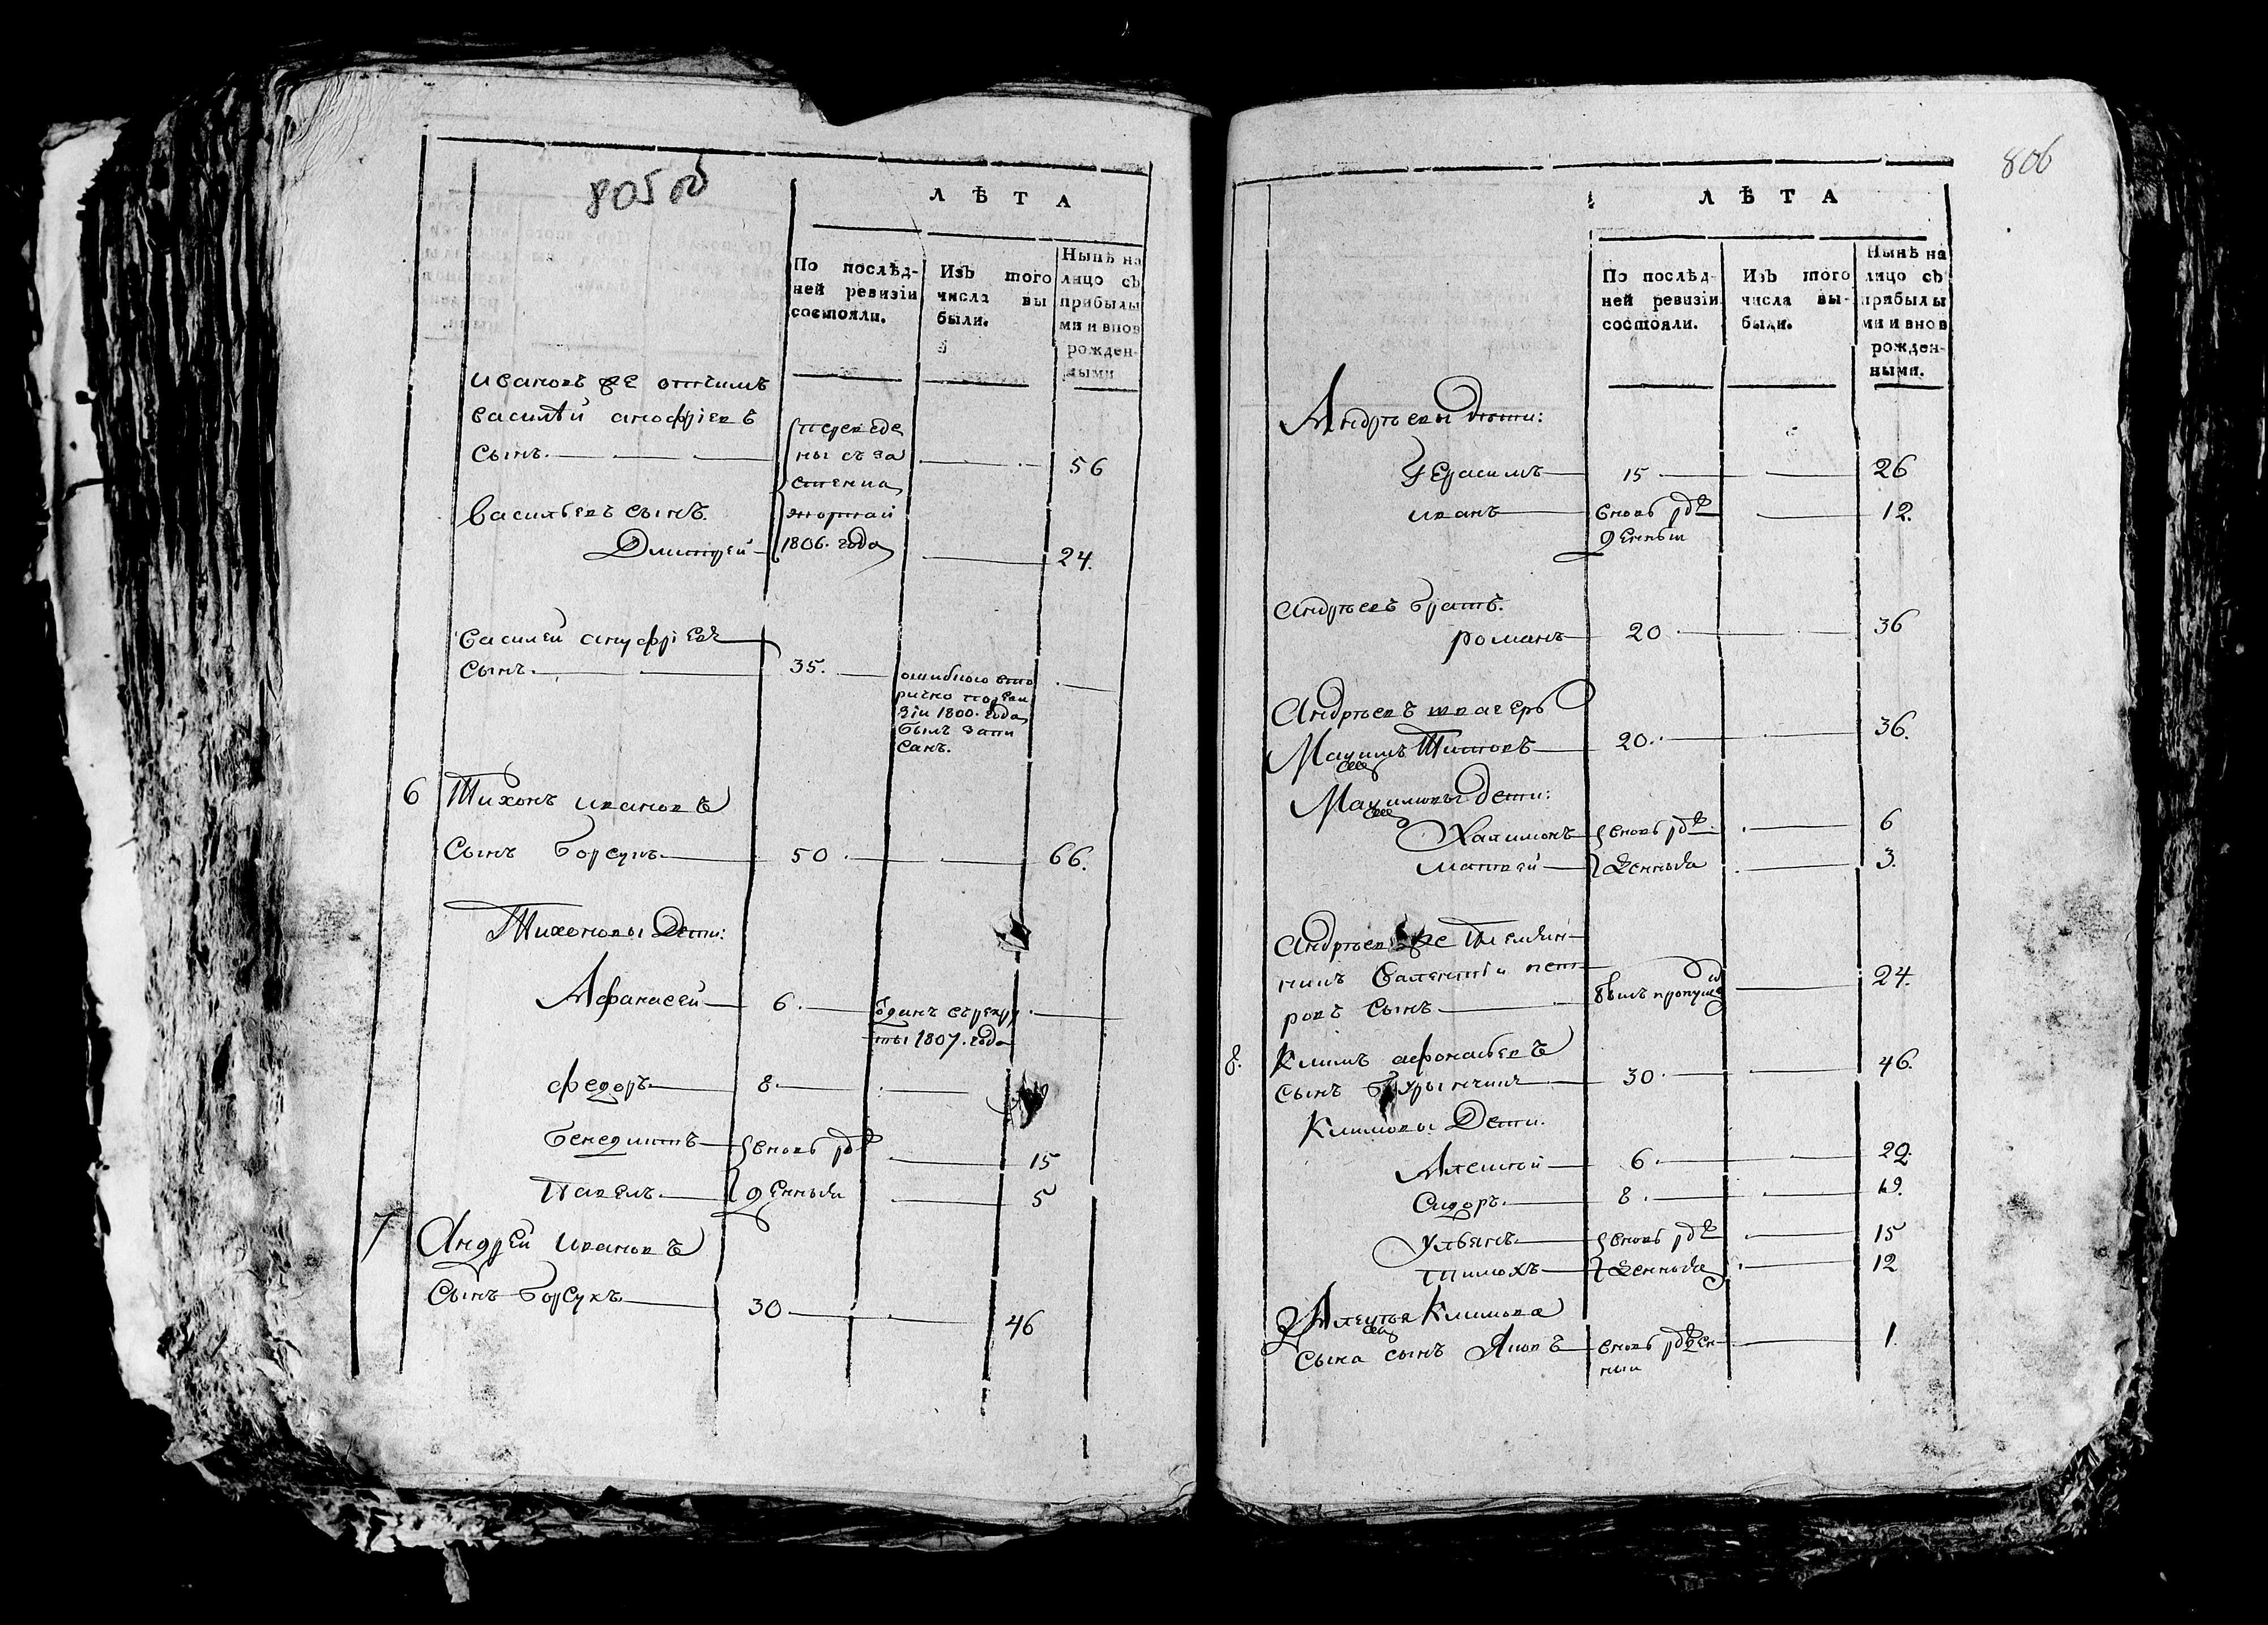 805 об
ЛѢТА
По послѣд-
ней ревизіи
состояли.
Изъ того
числа вы
были.
Нынѣ на
лицо съ
прибылы
ми и внов
рожден-
ными
Ивановъ же отчимъ
василѣй анофріевъ
сынъ. 56
переведе
ны съ за
стенка
1806. года
Васильевъ сынъ.
Дмитрей 24.
василей ануфріевъ
сынъ. 35.
ошибкою вто
рично по реви
зіи 1800. года
былъ запи
санъ.
6 Тихонъ ивановъ
Сынъ борсукъ 50 66.
Тихоновы Дети:
Афанасей 6
въ рекру
ты 1807. года
федоръ 8
бенедиктъ вновь рож 15
павелъ денныя 5
7 Андрей ивановъ
Сынъ борсукъ 30 46
806
ЛѢТА
По послѣд-
ней ревизіи
состояли.
Изъ того
числа вы-
были.
Нынѣ на
лицо съ
прибылы
ми и внов
рожден-
ными.
Андрѣевы дѣти:
Герасимъ 15 26
иванъ вновь рож 12.
денныи
Андрѣевъ братъ.
романъ 20 36
Андрѣевъ швагеръ
Максимъ Титовъ 20 36.
Максимовы дети:
Халимонъ вновь рож 6
матвей денныя 3.
Андрѣевъ же племян-
никъ Валентіи пет
ровъ сынъ былъ пропущ 24.
8. Климъ афонасьевъ
сынъ 30 46.
Климовы Дети.
Алексей 6 22.
Сидоръ 8 19.
Ульянъ вновь рож 15
тимохъ денныя 12
Алексѣя Климова
сына сынъ Яковъ вновь рожден- 1.
ныи